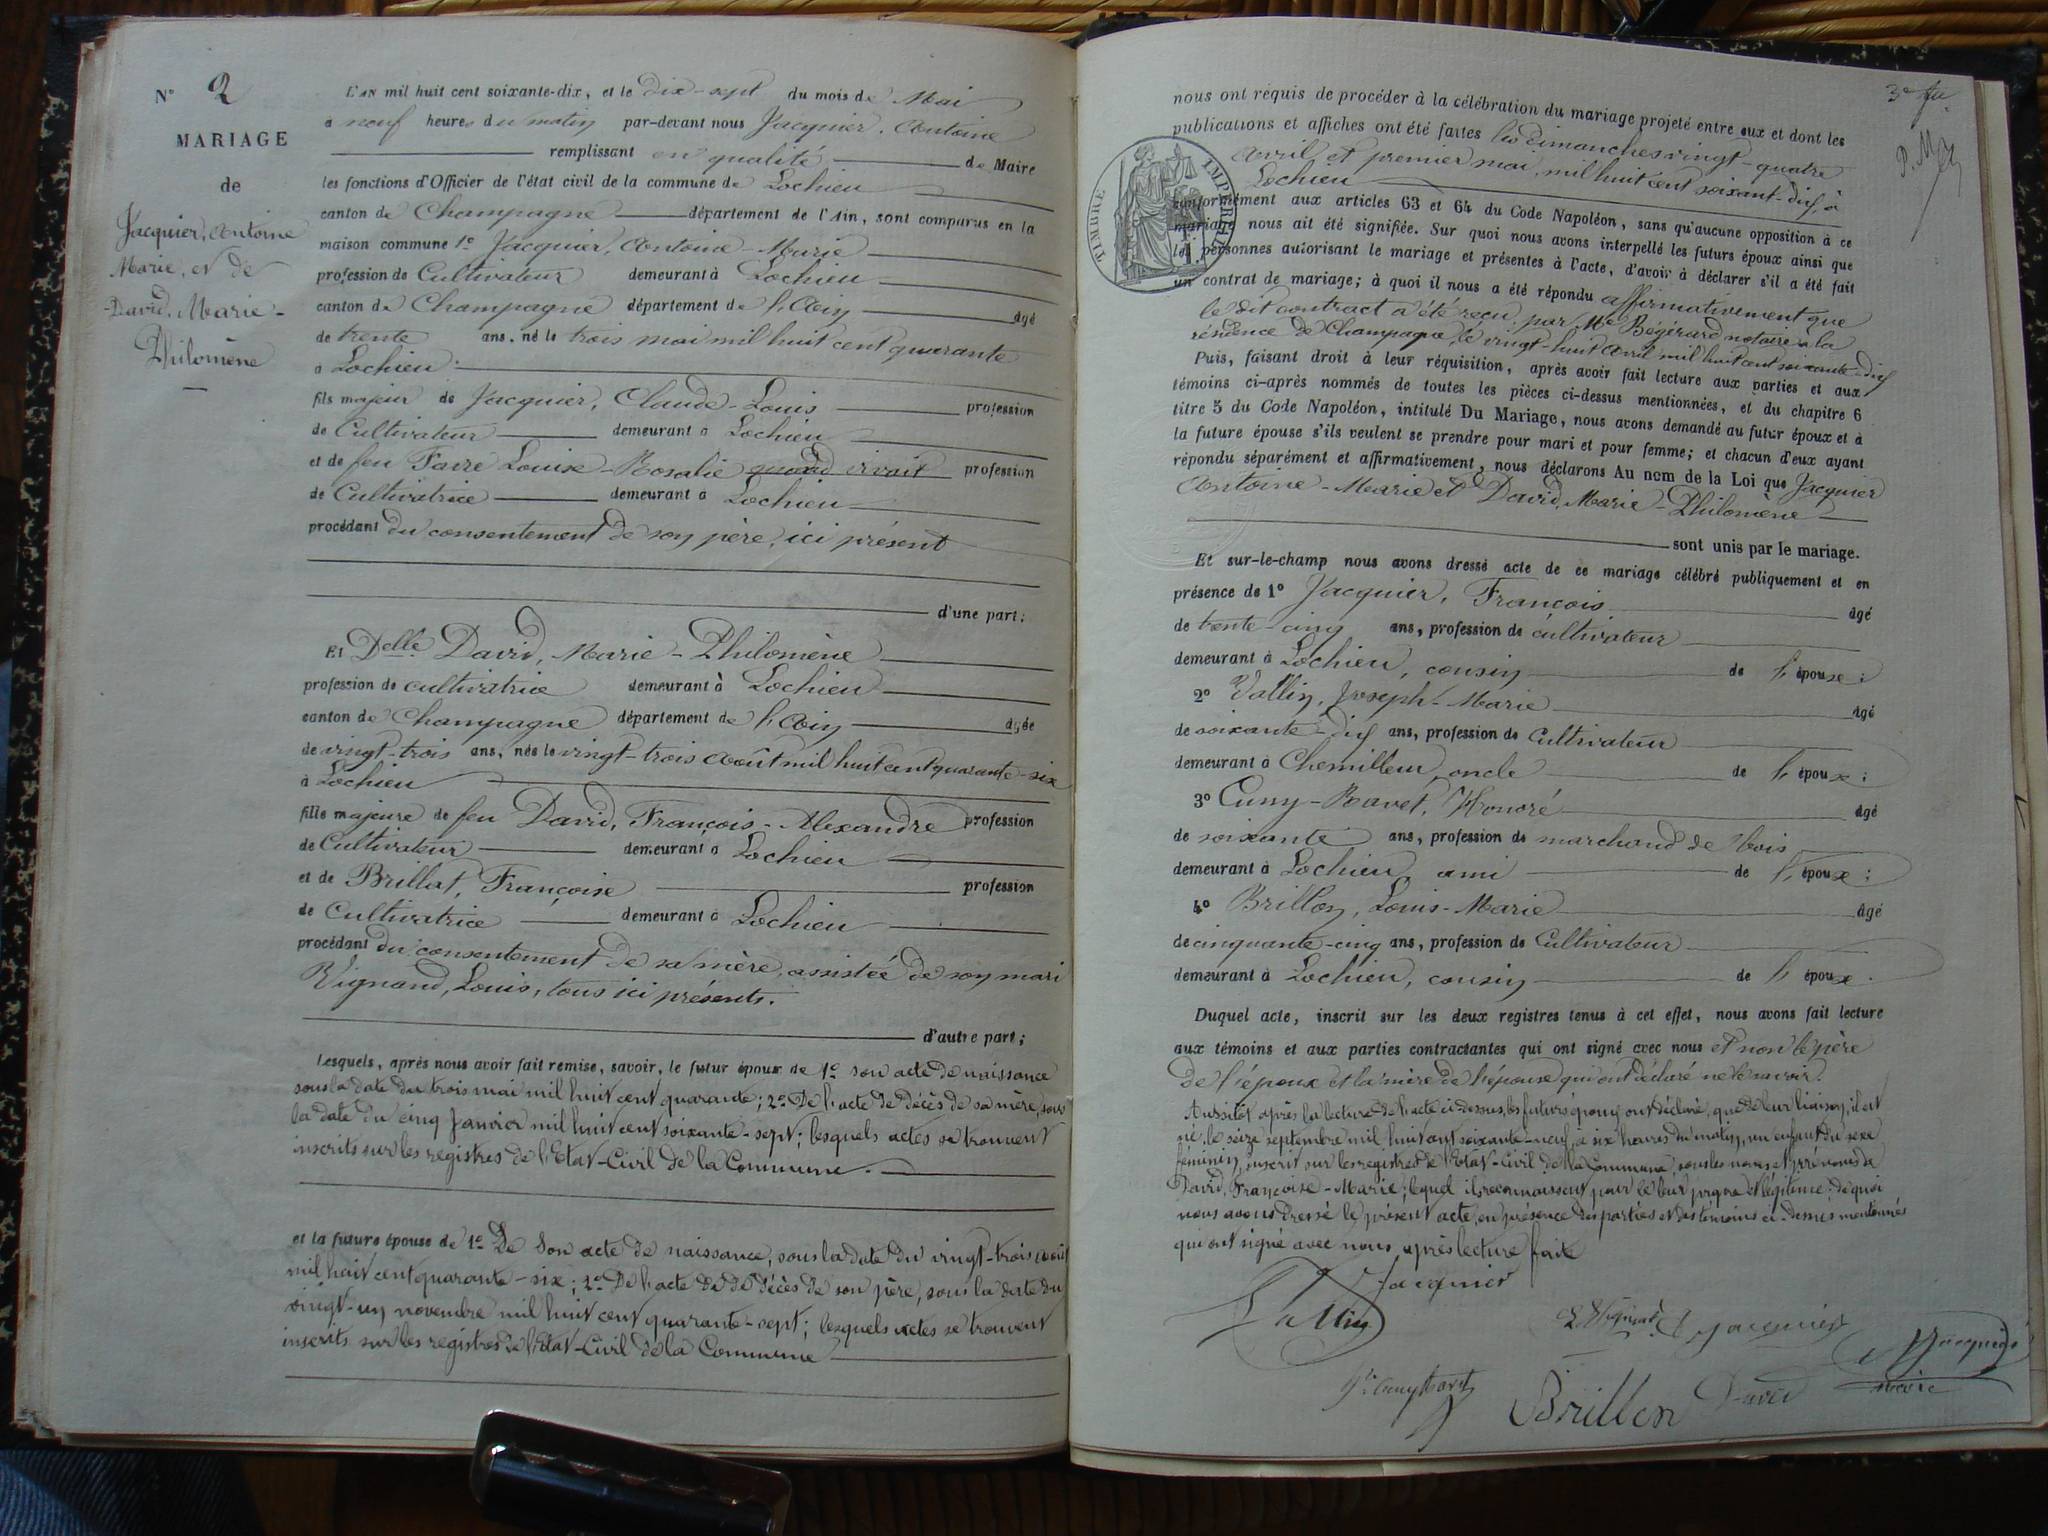 N° 2
MARIAGE
de
Jacquier, Antoine
Marie, et de
David, Marie-
Philomène
L'AN mil huit cent soixante-dix, et le dix-sept du mois de Mai
à neuf heures du matin par-devant nous Jacquier, Antoine
remplissant en qualité de Maire
les fonctions d'Officier de l'état civil de la commune de Lochieu
canton de Champagne département de l'Ain, sont comparus en la
maison commune 1° Jacquier, Antoine-Marie
profession de Cultivateur demeurant à Lochieu
canton de Champagne département de l'Ain âgé
de trente ans, né le trois mai mil huit cent quarante
à Lochieu
fils majeur de Jacquier, Claude-Louis profession
de Cultivateur demeurant à Lochieu
et de feu Favre Louise-Rosalie quand vivait profession
de Cultivatrice demeurant à Lochieu
procédant du consentement de son père, ici présent
d'une part;
Et Delle David, Marie-Philomène
profession de cultivatrice demeurant à Lochieu
canton de Champagne département de l'Ain âgée
de vingt-trois ans, née le vingt-trois Août mil huit cent quarante-six
à Lochieu
fille majeure de feu David, François-Alexandre profession
de Cultivateur demeurant à Lochieu
et de Brillat, Françoise profession
de Cultivatrice demeurant à Lochieu
procédant du consentement de sa mère, assistée de son mari
Vignand, Louis, tous ici présents.
d'autre part;
Lesquels, après nous avoir fait remise, savoir, le futur époux de 1° son acte de naissance
sous la date du trois mai mil huit cent quarante; 2° De l'acte de décès de sa mère, sous
la date du cinq Janvier mil huit cent soixante-sept; lesquels actes se trouvent
inscrits sur les registres de l'Etat-Civil de la Commune.
et la future épouse de 1° De Son acte de naissance, sous la date du vingt-trois août
mil huit cent quarante-six; 2° De l'acte de de décès de son père, sous la date du
vingt-un novembre mil huit cent quarante-sept; lesquels actes se trouvent
inscrits sur les registres de l'Etat-Civil de la Commune
3e
nous ont requis de procéder à la célébration du mariage projeté entre eux et dont les
publications et affiches ont été faites les dimanches vingt-quatre
Avril et premier mai, mil huit cent soixant-dix, à
Lochieu
TIMBRE IMPERIAL
conformément aux articles 63 et 64 du Code Napoléon, sans qu'aucune opposition à ce
mariage nous ait été signifiée. Sur quoi nous avons interpellé les futurs époux ainsi que
les personnes autorisant le mariage et présentes à l'acte, d'avoir à déclarer s'il a été fait
un contrat de mariage; à quoi il nous a été répondu affirmativement que
le dit contract a été reçu par Me Bégérard notaire à la
résidence de Champagne, le vingt-huit Avril mil huit cent soixante-dix
Puis, faisant droit à leur réquisition, après avoir fait lecture aux parties et aux
témoins ci-après nommés de toutes les pièces ci-dessus mentionnées, et du chapitre 6
titre 5 du Code Napoléon, intitulé Du Mariage, nous avons demandé au futur époux et à
la future épouse s'ils veulent se prendre pour mari et pour femme; et chacun d'eux ayant
répondu séparément et affirmativement, nous déclarons Au nom de la Loi que Jacquier
Antoine-Marie et David, Marie-Philomène
sont unis par le mariage.
Et sur-le-champ nous avons dressé acte de ce mariage célébré publiquement et en
présence de 1° Jacquier, François âgé
de trente-cinq ans, profession de cultivateur
demeurant à Lochieu, cousin de l'épouse;
2° Vallin, Joseph-Marie âgé
de soixante-dix ans, profession de Cultivateur
demeurant à Chemilleu, oncle de l'époux;
3° Cuny-Ravet, Honoré âgé
de soixante ans, profession de marchand de Bois
demeurant à Lochieu, ami de l'épouse;
4° Brillon, Louis-Marie âgé
de cinquante-cinq ans, profession de Cultivateur
demeurant à Lochieu, cousin de l'époux.
Duquel acte, inscrit sur les deux registres tenus à cet effet, nous avons fait lecture
aux témoins et aux parties contractantes qui ont signé avec nous et non le père
de l'époux et la mère de l'épouse qui ont déclaré ne le savoir.
Aussitôt après la lecture de l'acte ci-dessus, les futurs époux ont déclaré, que de leur liaison, il est
né, le seize septembre mil huit cent soixante-neuf, à six heures du matin, un enfant du sexe
féminin, inscrit sur les registres de l'Etat-Civil de la Commune, sous les noms et prénoms de
David, Françoise-Marie; lequel ils reconnaissent pour le leur propre et légitime; de quoi
nous avons dressé le présent acte, en présence des parties et des témoins ci-dessus mentionnés
qui ont signé avec nous après lecture faite
Jacquier
Vallin
L Vignand
Jacquier
Jacquier
maire
Cuny Ravet
Brillon
David